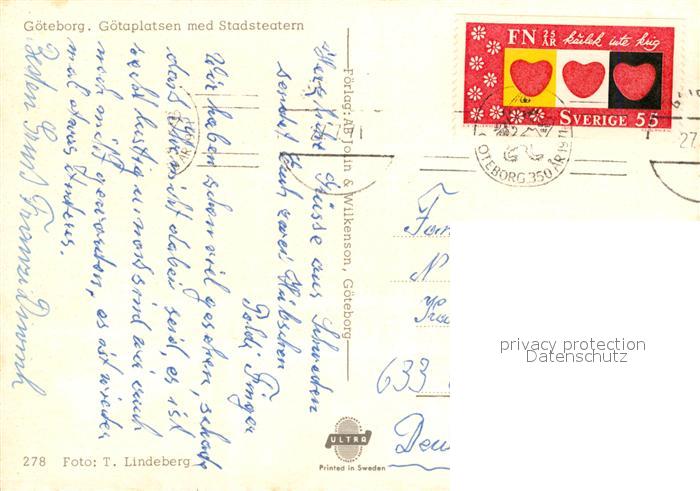 Göteborg. Götaplatsen med Stadsteatern
Herzliche Grüsse aus Schweden
sendet Euch zwei Hübschen
Poldi Finger
Wir haben schon viel gesehen, schade
daß Ihr nicht dabei seid, es ist
recht lustig u. noch sind wir auch
noch nicht geworden, es ist wieder
mal etwas Anderes.
Besten Gruß Franzi
Förlag: AB John & Wilkenson, Göteborg
FN 25 ÅR kärlek inte krig
SVERIGE 55
GÖTEBORG 350 ÅR 1971
27.
Fam
N
633
Deu
privacy protection
Datenschutz
ULTRA
Printed in Sweden
278 Foto: T. Lindeberg